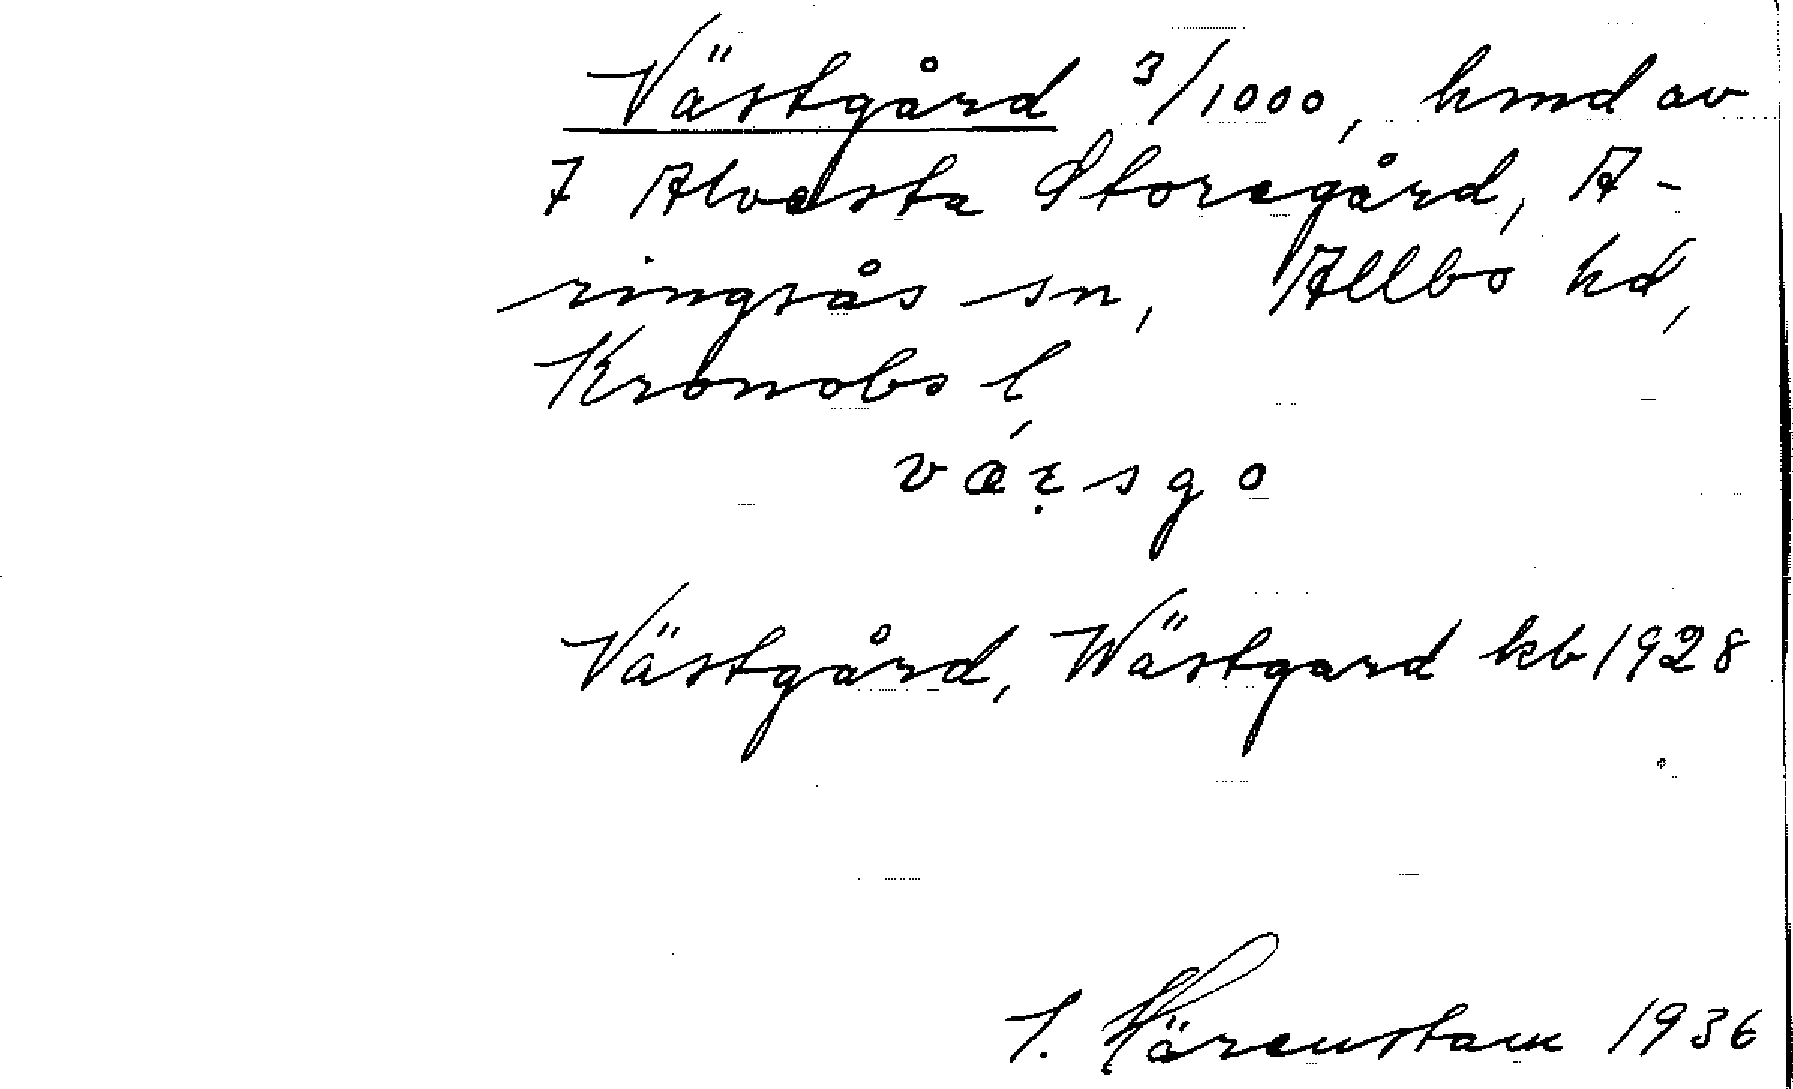 Västgård 3/1000, hmd av
7 Alvesta Storegård, A-
ringsås sn, Allbo hd,
Kronobs l,
væṛsgo
Västgård, Wästgard kb 1928
I. Härenstam 1936